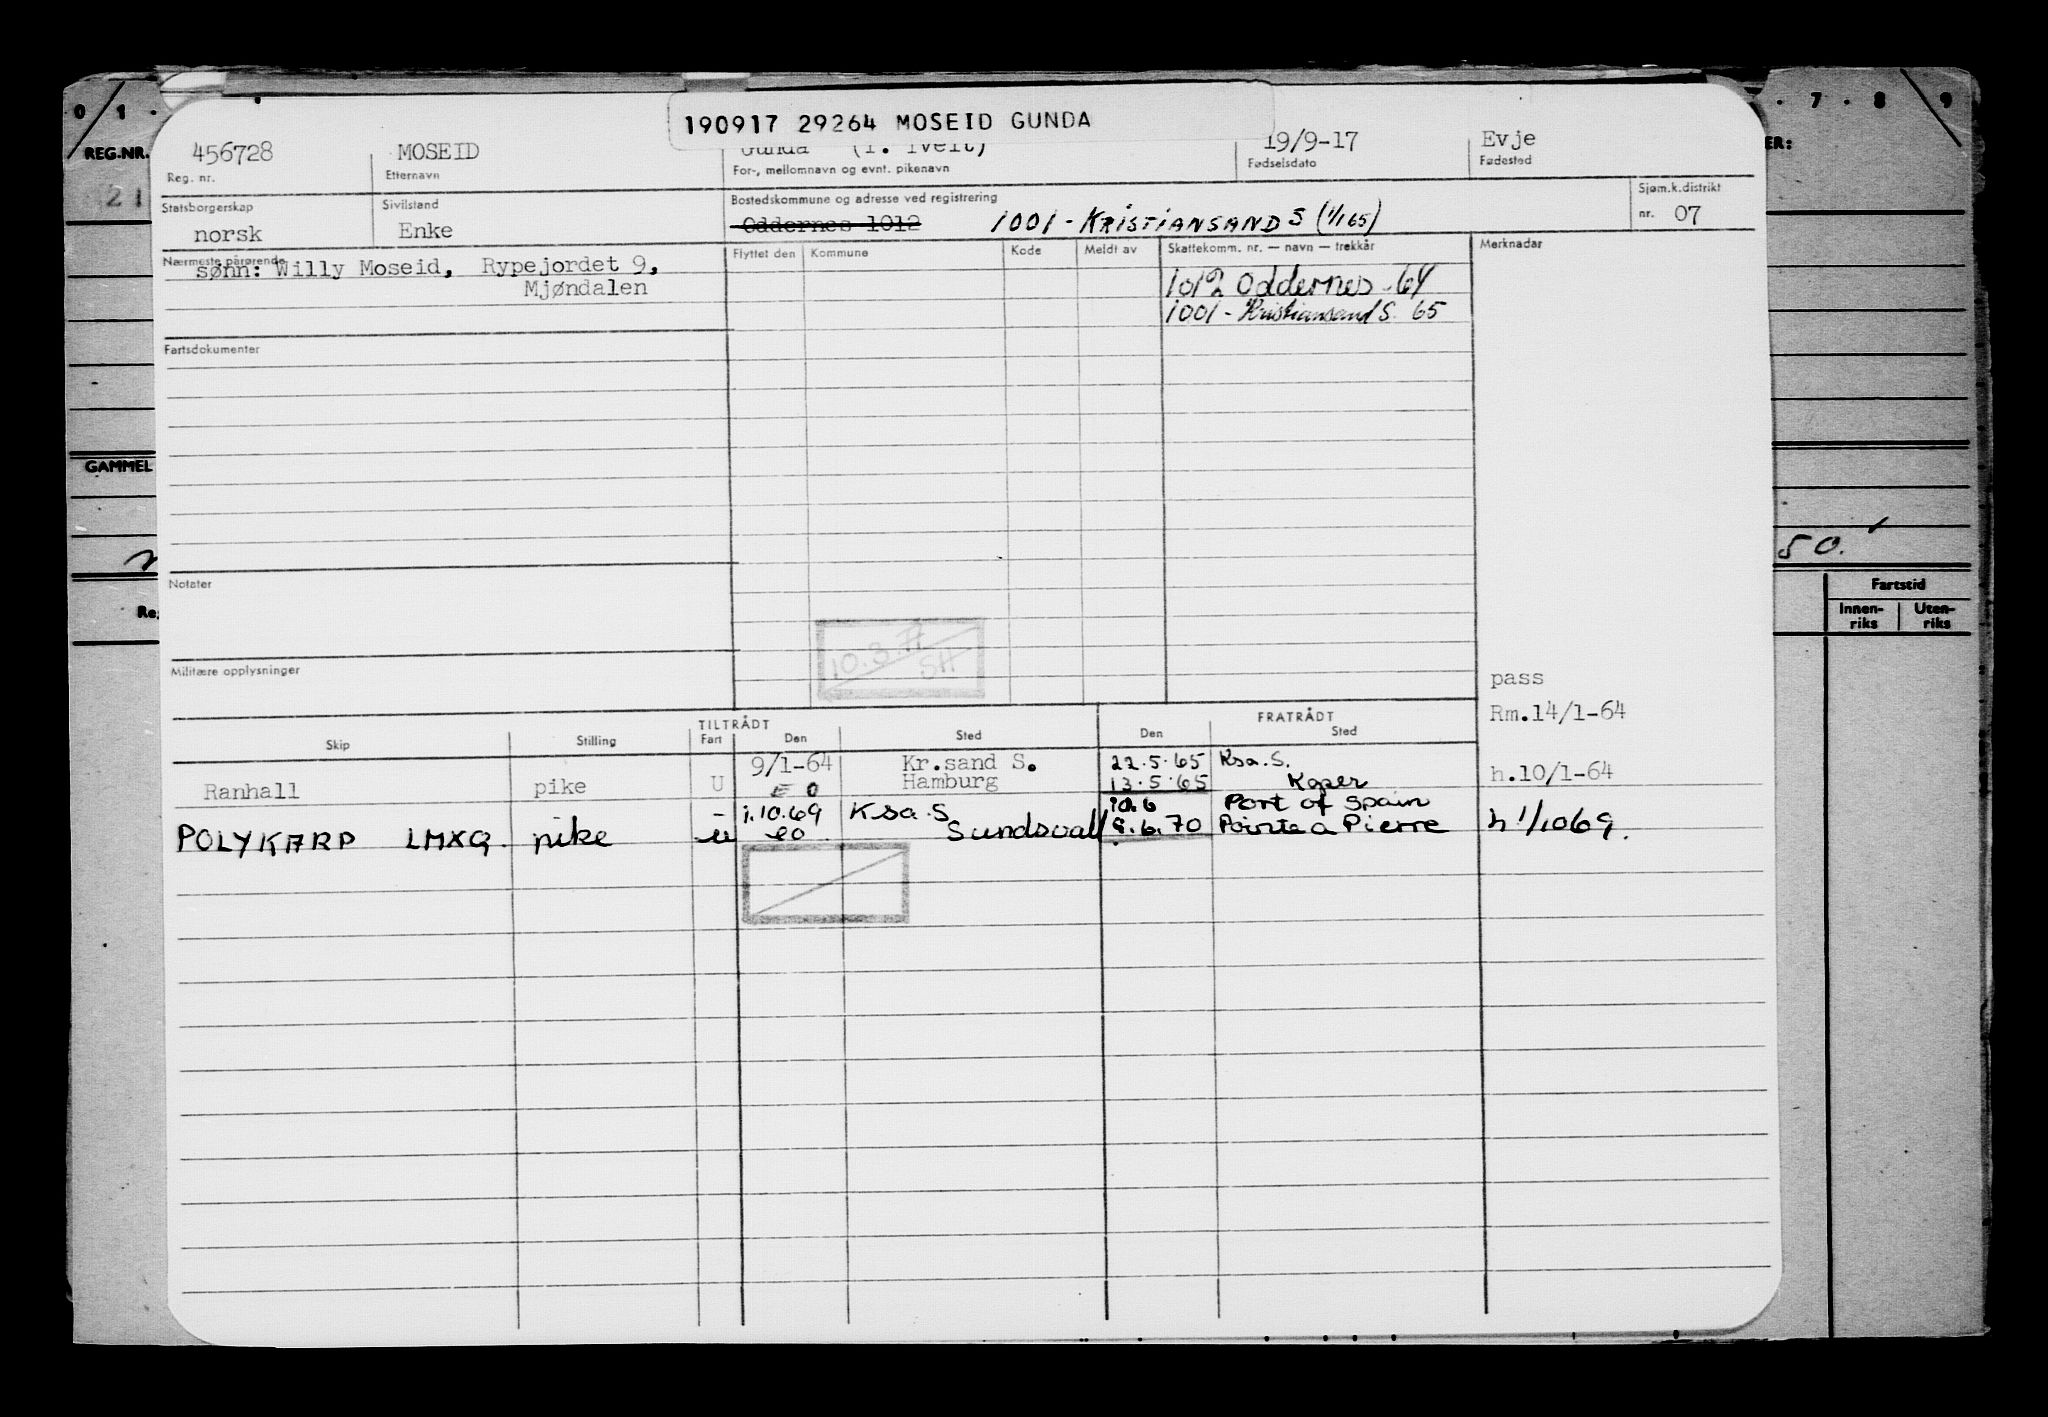 0 1 . . 7 . 8 9
190917 29264 MOSEID GUNDA
REG.NR. 456728 MOSEID Gunda (f. Tveit) 19/9-17 Evje
Reg. nr. Etternavn For-, mellomnavn og evnt. pikenavn Fødselsdato Fødested
21
Statsborgerskap Sivilstand Bostedskommune og adresse ved registrering Sjøm.k.distrikt
norsk Enke Oddernes 1012 1001 - KRISTIANSAND S (1/1 65) nr. 07
Nærmeste pårørende Flyttet den Kommune Kode Meldt av Skattekomm. nr. — navn — trekkår Merknader
sønn: Willy Moseid, Rypejordet 9,
Mjøndalen
1012 Oddernes - 64
1001 - Kristiansand S. 65
Fartsdokumenter
GAMMEL
50.
Notater
Fartstid
Innen-riks Uten-riks
10.3.77
SH
Militære opplysninger
pass
Rm.14/1-64
TILTRÅDT FRATRÅDT
Skip Stilling Fart Den Sted Den Sted
9/1-64 Kr.sand S. 22.5.65 Ksa.S.
Ranhall pike U E O Hamburg 13.5.65 Koper h.10/1-64
- 1.10.69 Ksa.S 10.6 Port of Spain
POLYKARP LMXG. pike u eo Sundsvall 9.6.70 Pointe a Pierre h 1/10 69.